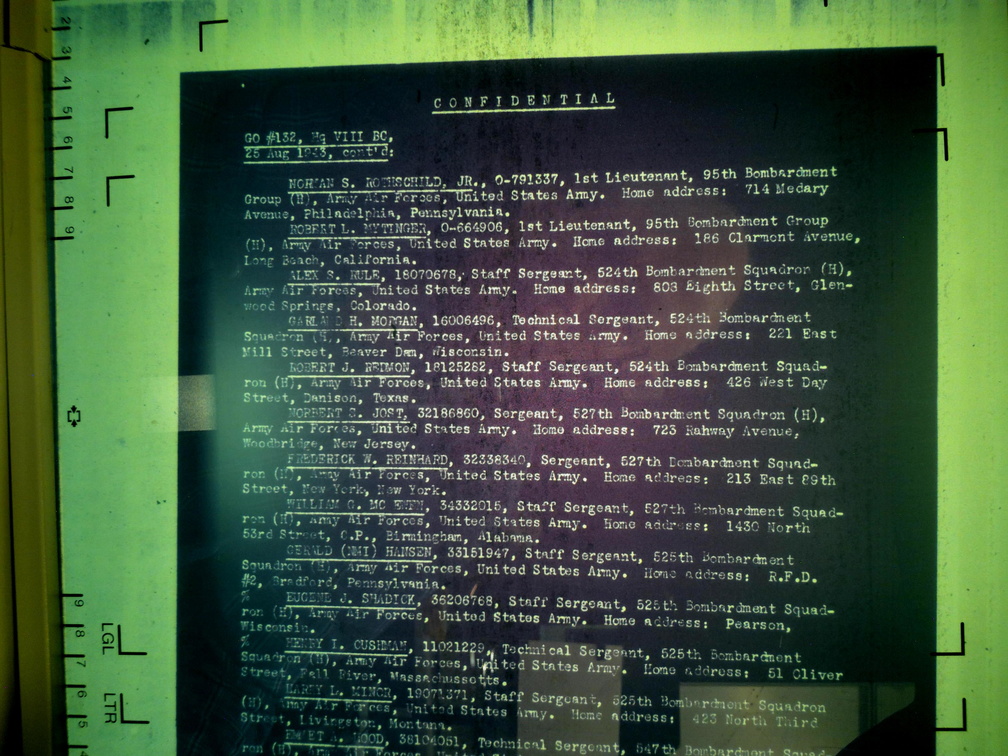 CONFIDENTIAL
GO #132, Hq VIII BC,
25 Aug 1943, cont'd:
NORMAN S. ROTHSCHILD, JR., O-791337, 1st Lieutenant, 95th Bombardment
Group (H), Army Air Forces, United States Army. Home address: 714 Medary
Avenue, Philadelphia, Pennsylvania.
ROBERT L. MYTINGER, O-664906, 1st Lieutenant, 95th Bombardment Group
(H), Army Air Forces, United States Army. Home address: 186 Clarmont Avenue,
Long Beach, California.
ALEX S. RULE, 18070678, Staff Sergeant, 524th Bombardment Squadron (H),
Army Air Forces, United States Army. Home address: 803 Eighth Street, Glen-
wood Springs, Colorado.
GARLAND H. MORGAN, 16006496, Technical Sergeant, 524th Bombardment
Squadron (H), Army Air Forces, United States Army. Home address: 221 East
Mill Street, Beaver Dam, Wisconsin.
ROBERT J. 18125262, Staff Sergeant, 524th Bombardment Squad-
ron (H), Army Air Forces, United States Army. Home address: 426 West Day
Street, Danison, Texas.
NORBERT JOST, 32186860, Sergeant, 527th Bombardment Squadron (H),
Army Air Forces, United States Army. Home address: 723 Rahway Avenue,
Woodbridge, New Jersey.
FREDERICK W. REINHARD, 32338340, Sergeant, 527th Bombardment Squad-
ron (H), Army Air Forces, United States Army. Home address: 213 East 89th
Street, New York, New York.
WILLIAM G. MC 34332015, Staff Sergeant, 527th Bombardment Squad-
ron (H), Army Air Forces, United States Army. Home address: 1430 North
53rd Street, C.P., Birmingham, Alabama.
GERALD (NMI) HANSEN, 33151947, Staff Sergeant, 525th Bombardment
Squadron (H), Army Air Forces, United States Army. Home address: R.F.D.
#2, Bradford, Pennsylvania.
% EUGENE J. SHADICK, 36206768, Staff Sergeant, 525th Bombardment Squad-
ron (H), Army Air Forces, United States Army. Home address: Pearson,
Wisconsin.
% HENRY I. CUSHMAN, 11021229, Technical Sergeant, 525th Bombardment
Squadron (H), Army Air Forces, United States Army. Home address: 51 Oliver
Street, Fall River, Massachusetts.
HARRY L. MINOR, 19071371, Staff Sergeant, 525th Bombardment Squadron
(H), Army Air Forces, United States Army. Home address: 423 North Third
Street, Livingston, Montana.
HOOD, 38104051, Technical Sergeant, 547th Bombardment Squad-
ron (H), Army Air Forces, United States Army. Home address:
2 3 4 5 6 7 8 9
9 8 7 6 5 4
LGL
LTR